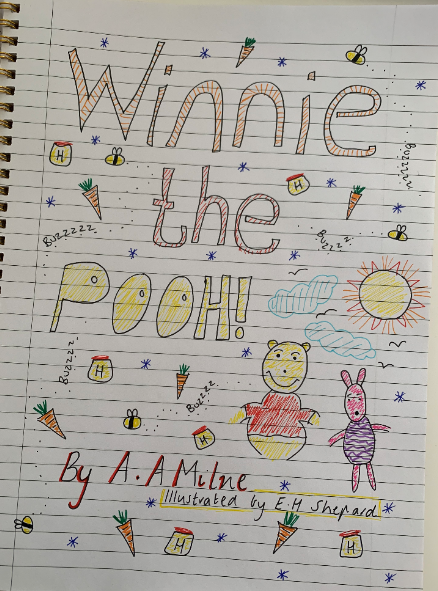 Winnie
Buzzzzz
H
the
H
Buzzzzz
Buzzzz
POOH!
Buzzzz
H
Buzzzz
H
By A. A Milne
Illustrated by E.H Shepard
H
H